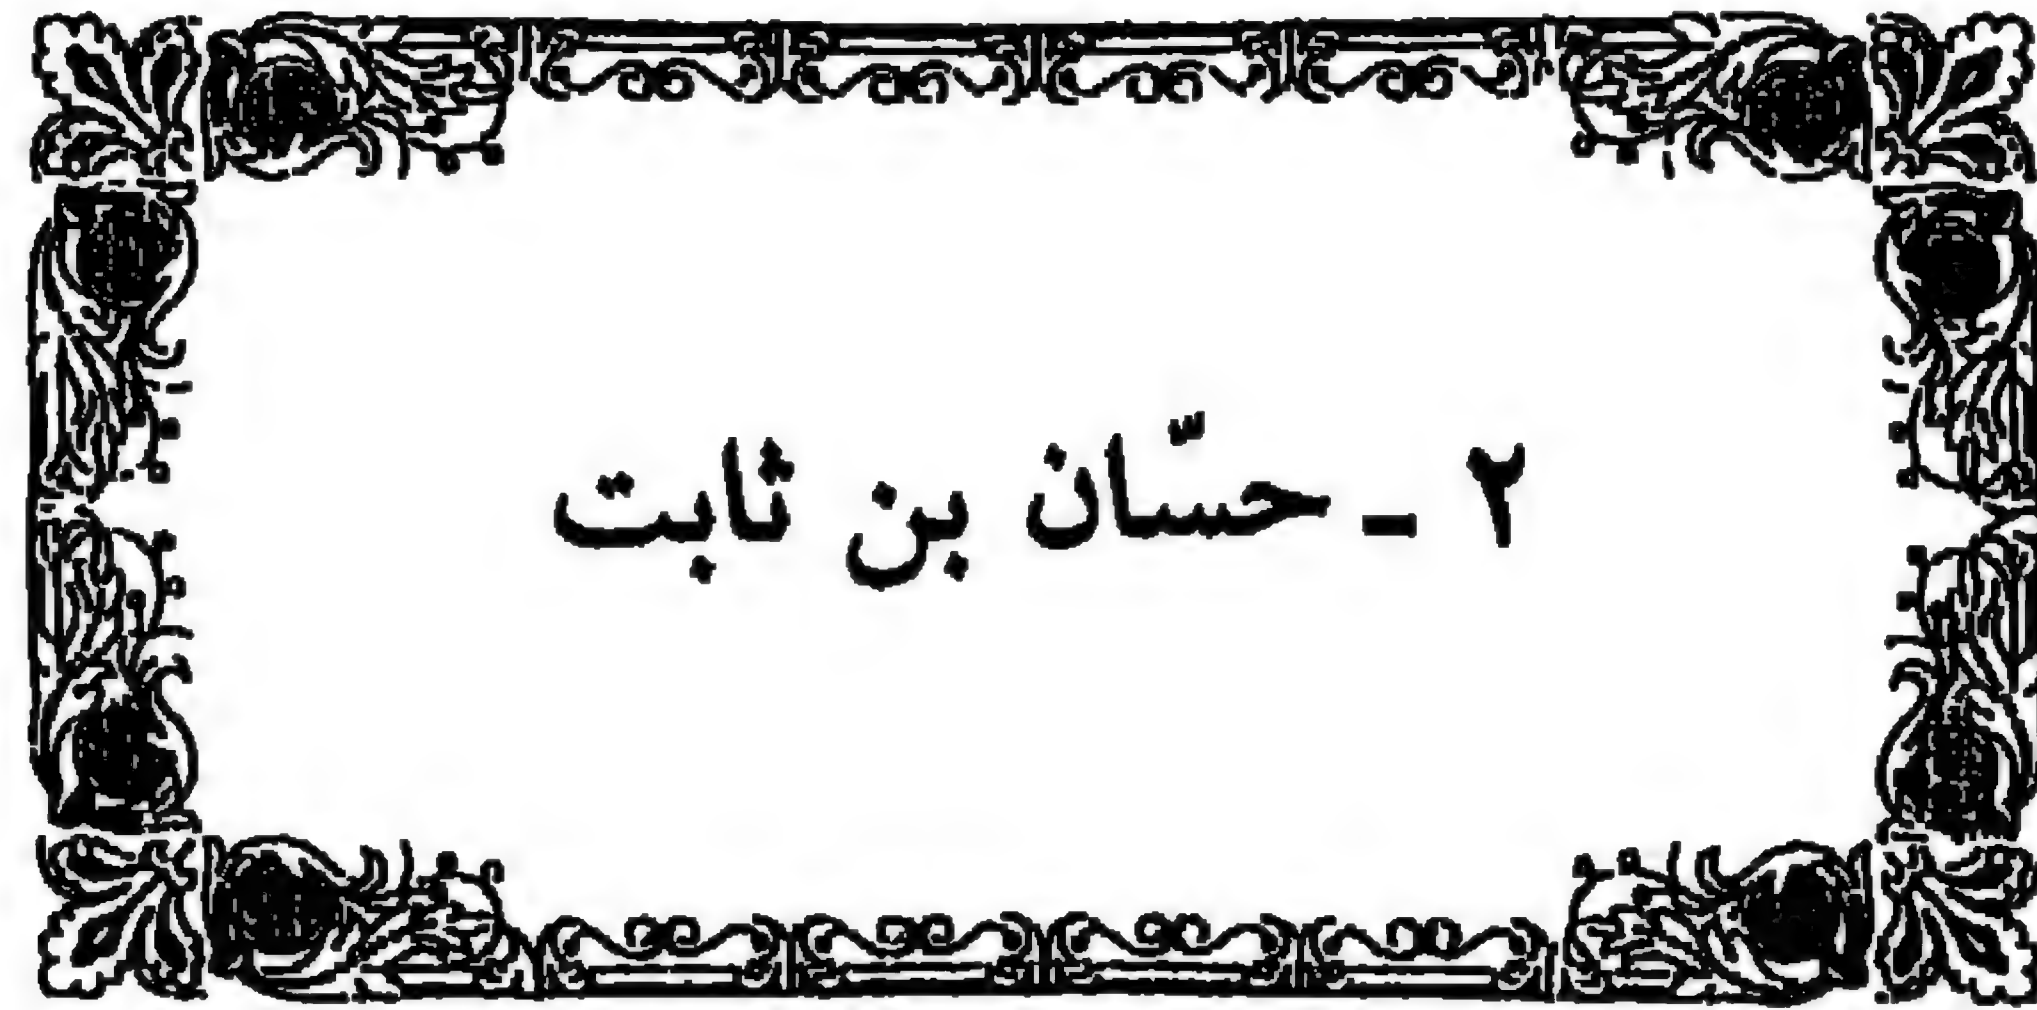 ٢ ـ حسّان بن ثابت